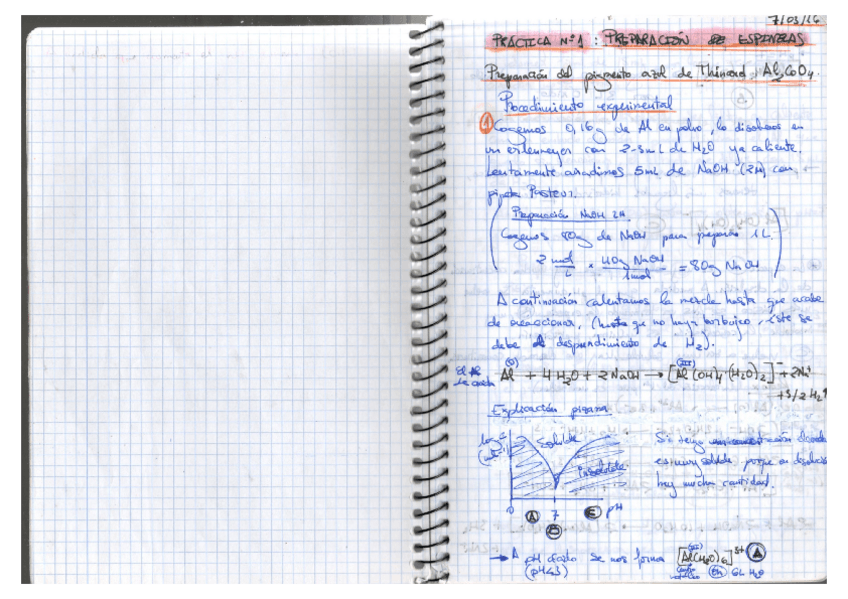 7/03/16
PRÁCTICA Nº1: PREPARACIÓN DE ESPINELAS
Preparación del pigmento azul de Thénard Al2CoO4.
Procedimiento experimental
① Cogemos 0,16g de Al en polvo, lo disolvemos en
un erlenmeyer con 2-3mL de H2O ya caliente.
Lentamente añadimos 5mL de NaOH (2M) con
pipeta Pasteur.
Preparación NaOH 2M
Cogemos 80g de NaOH para preparar 1L.
2 mol/L × 40g NaOH/1mol = 80g NaOH
A continuación calentamos la mezcla hasta que acabe
de reaccionar, (hasta que no haya burbujeo, éste se
debe al desprendimiento de H2).
El Al se oxida Al (0) + 4H2O + 2NaOH → [Al(OH)4·(H2O)2]⁻ (III) + 2Na⁺
+ 3/2 H2↑
Explicación pizarra
Soluble
Insoluble
0 7 pH
A B
Si tengo
es muy soluble porque en disolución
hay mucha cantidad.
→ A pH ácido se nos forma [Al(H2O)6]3+ (III) A
(pH<3) Oh 6 H2O